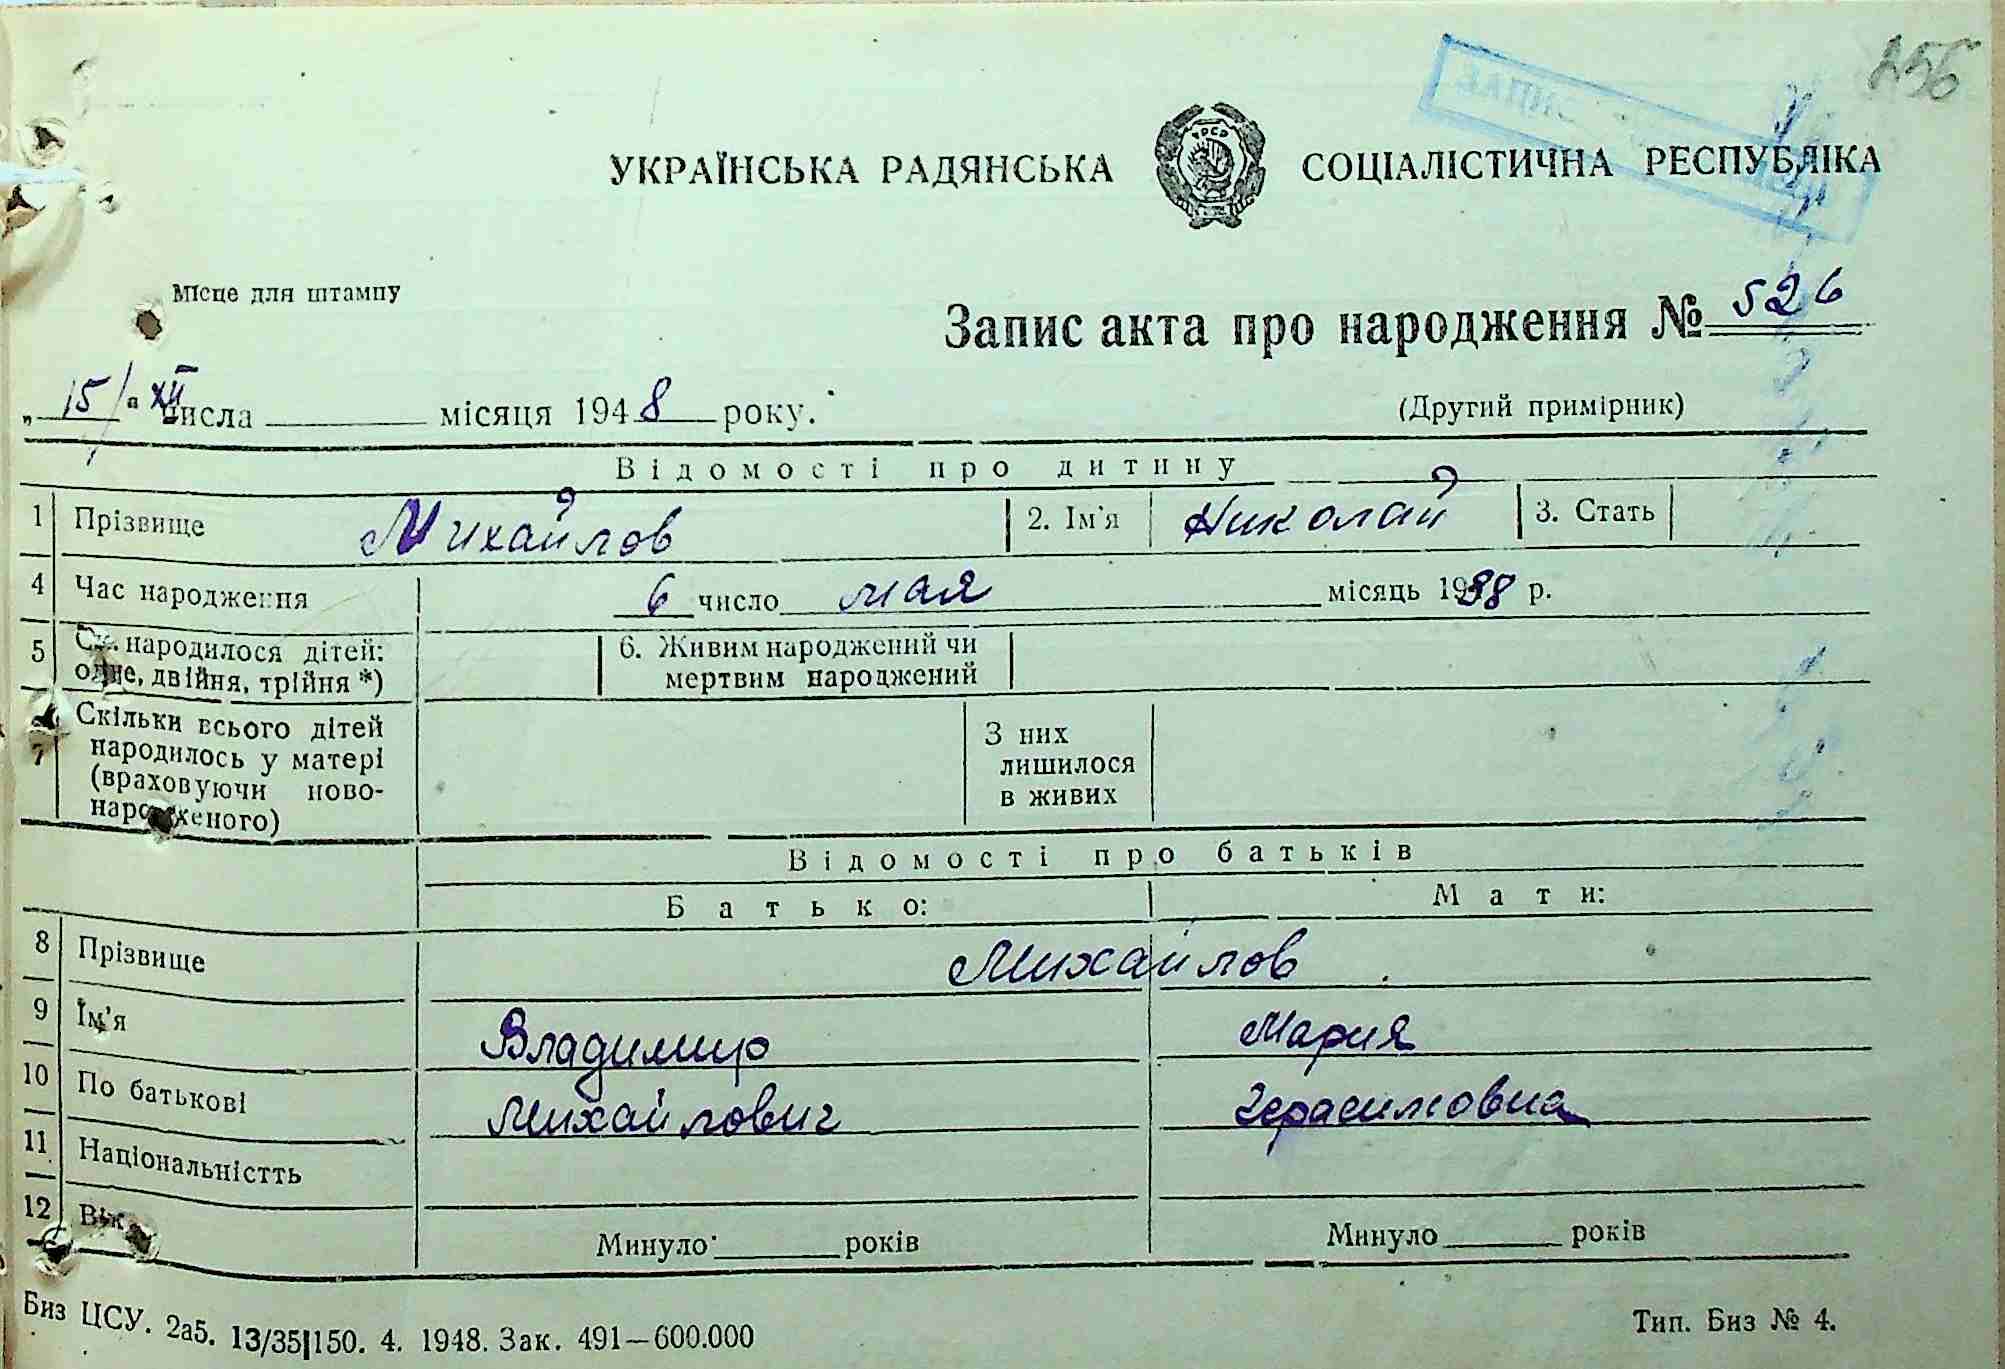 256
УКРАЇНСЬКА РАДЯНСЬКА СОЦІАЛІСТИЧНА РЕСПУБЛІКА
УРСР
Місце для штампу
Запис акта про народження № 526
„15/“ XII числа місяця 1948 року.
(Другий примірник)
Відомості про дитину
1 Прізвище Михайлов 2. Ім'я Николай 3. Стать
4 Час народження 6 число мая місяць 1938 р.
5 Ск. народилося дітей: одне, двійня, трійня *) 6. Живим народжений чи мертвим народжений
7 Скільки всього дітей народилось у матері (враховуючи ново-народженого) З них лишилося в живих
Відомості про батьків
Батько: Мати:
8 Прізвище Михайлов
9 Ім'я Владимир Мария
10 По батькові Михайлович Герасимовна
11 Національністть
12 Вік Минуло років Минуло років
Биз ЦСУ. 2а5. 13/35|150. 4. 1948. Зак. 491—600.000
Тип. Биз № 4.